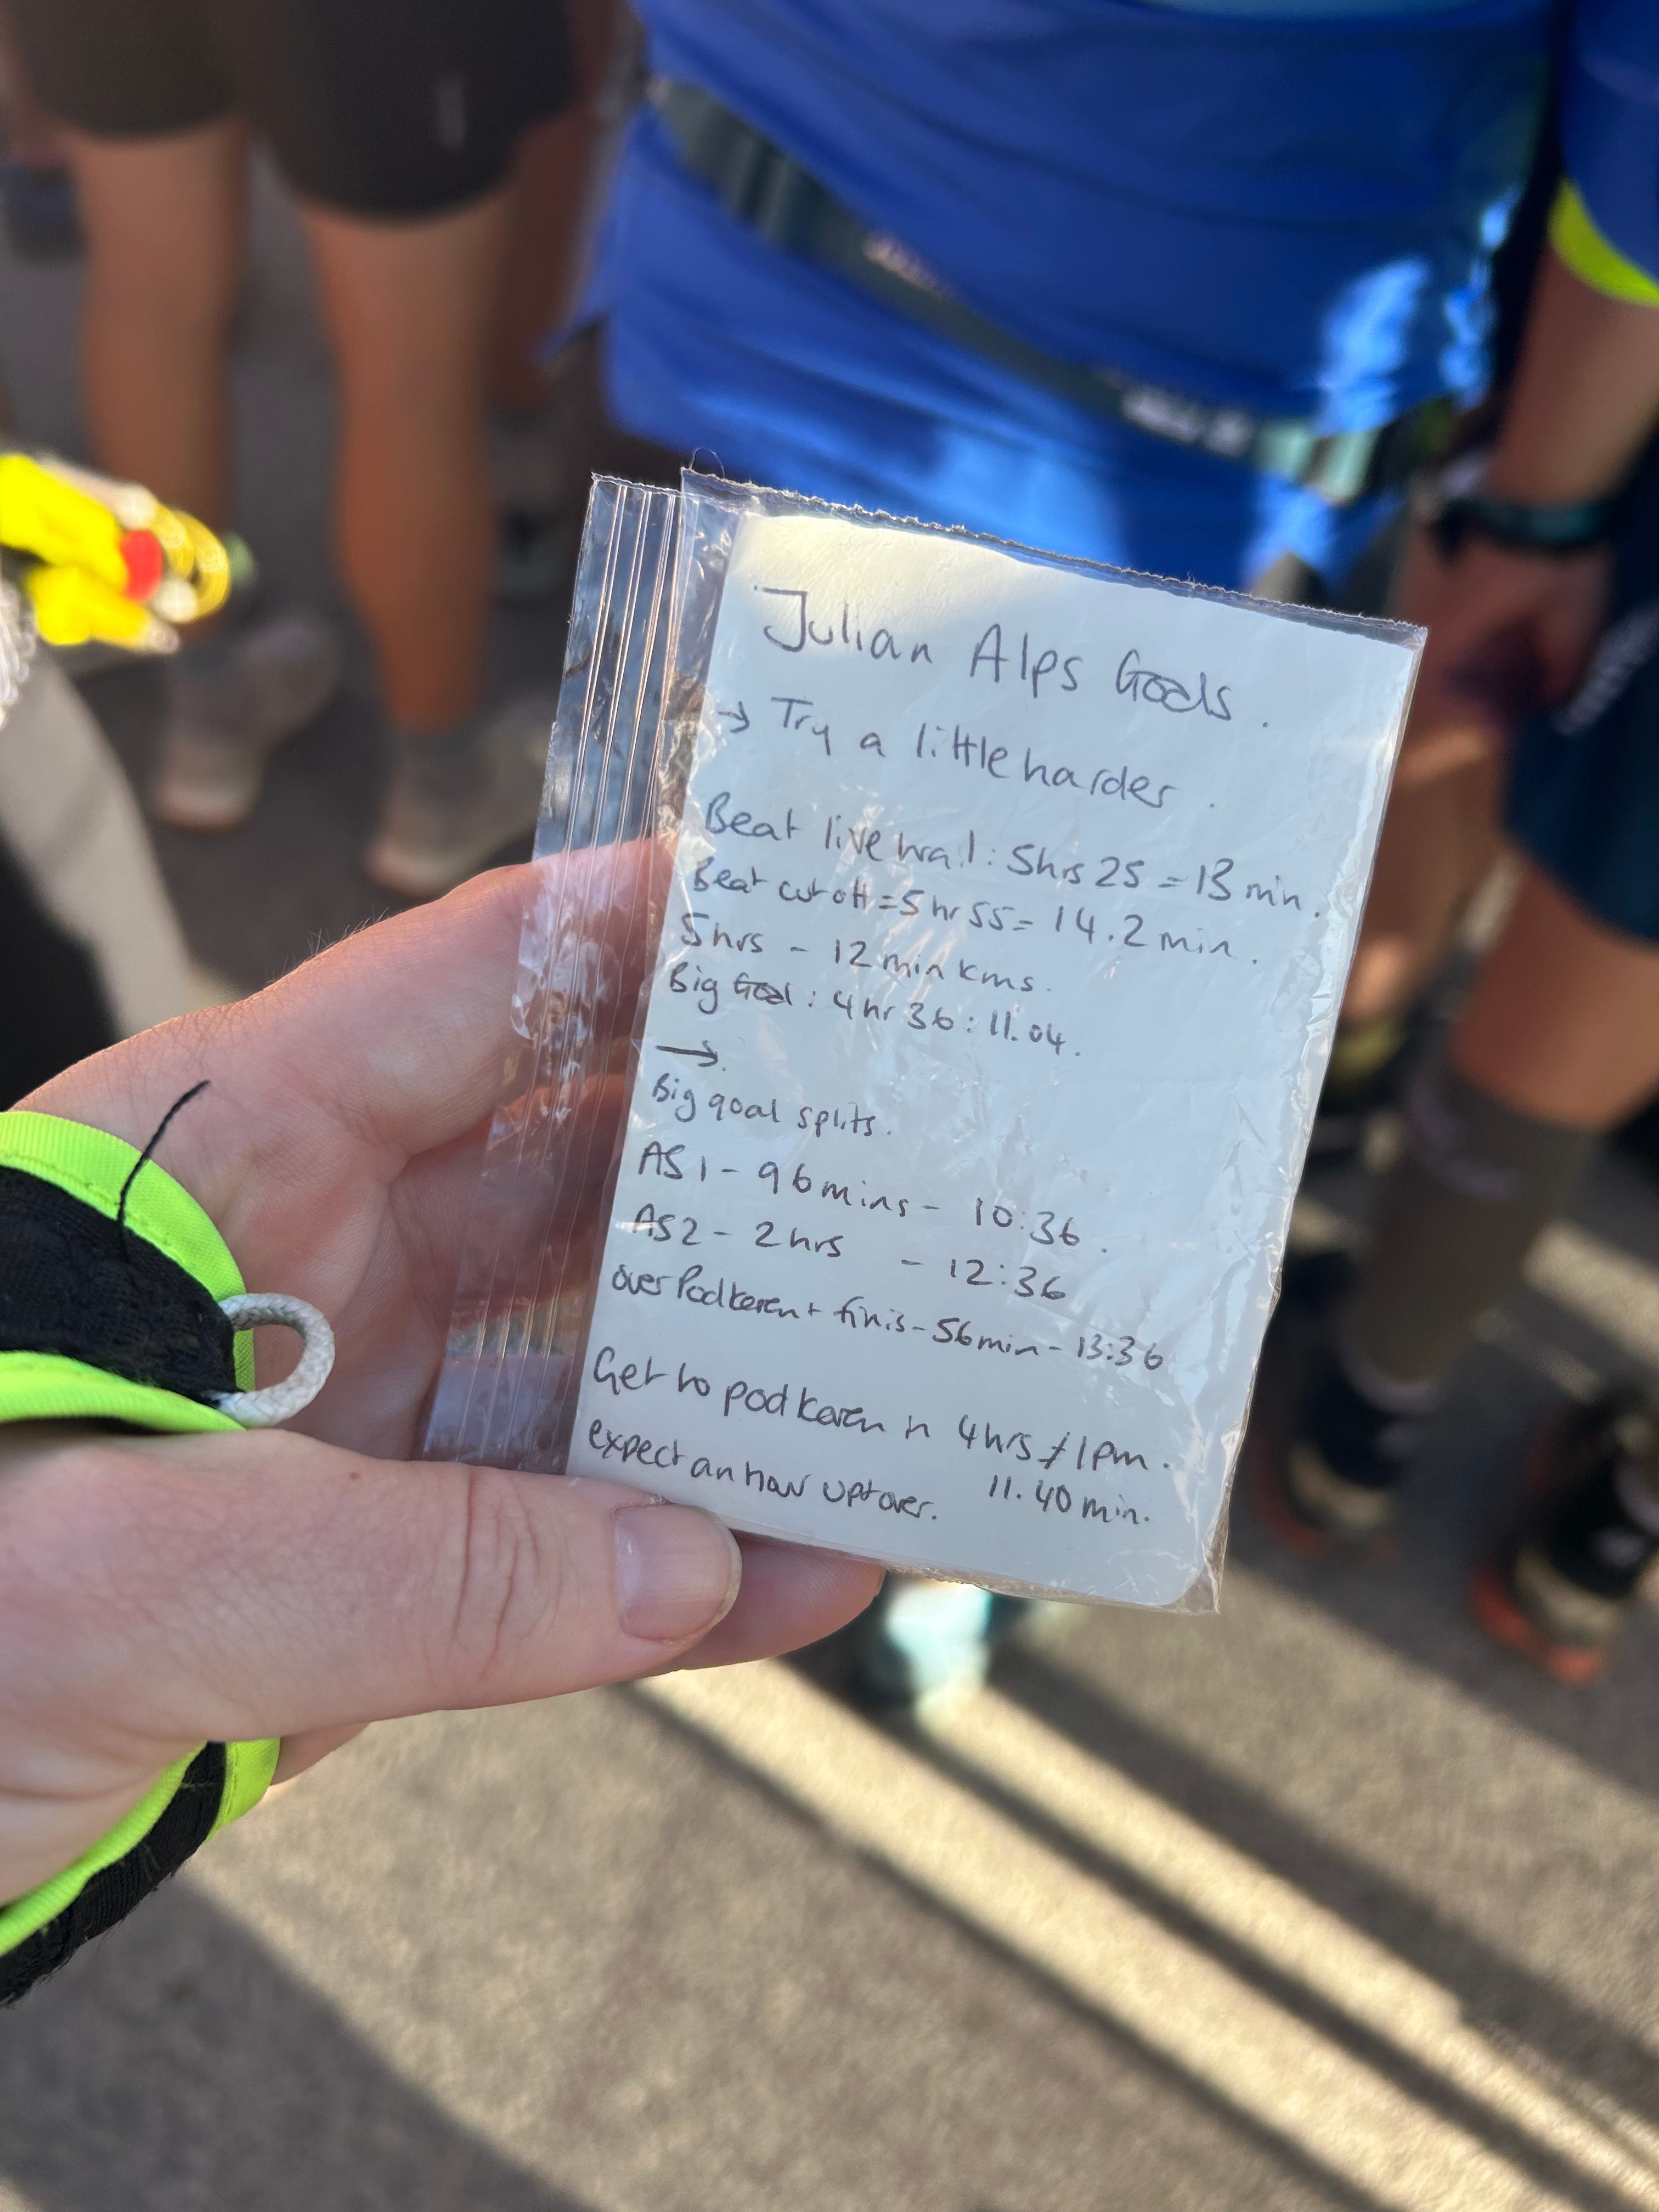 Julian Alps Goals.
→ Try a little harder.
Beat livetrail: 5hrs 25 = 13 min.
Beat cut off = 5 hr 55 = 14.2 min.
5hrs - 12 min kms.
Big Goal: 4hr 36: 11.04.
→
Big goal splits.
AS1 - 96 mins - 10:36.
AS2 - 2hrs - 12:36
over Podkoren + finis - 56 min - 13:36
Get to podkoren in 4hrs / 1pm.
expect an hour up + over. 11.40 min.